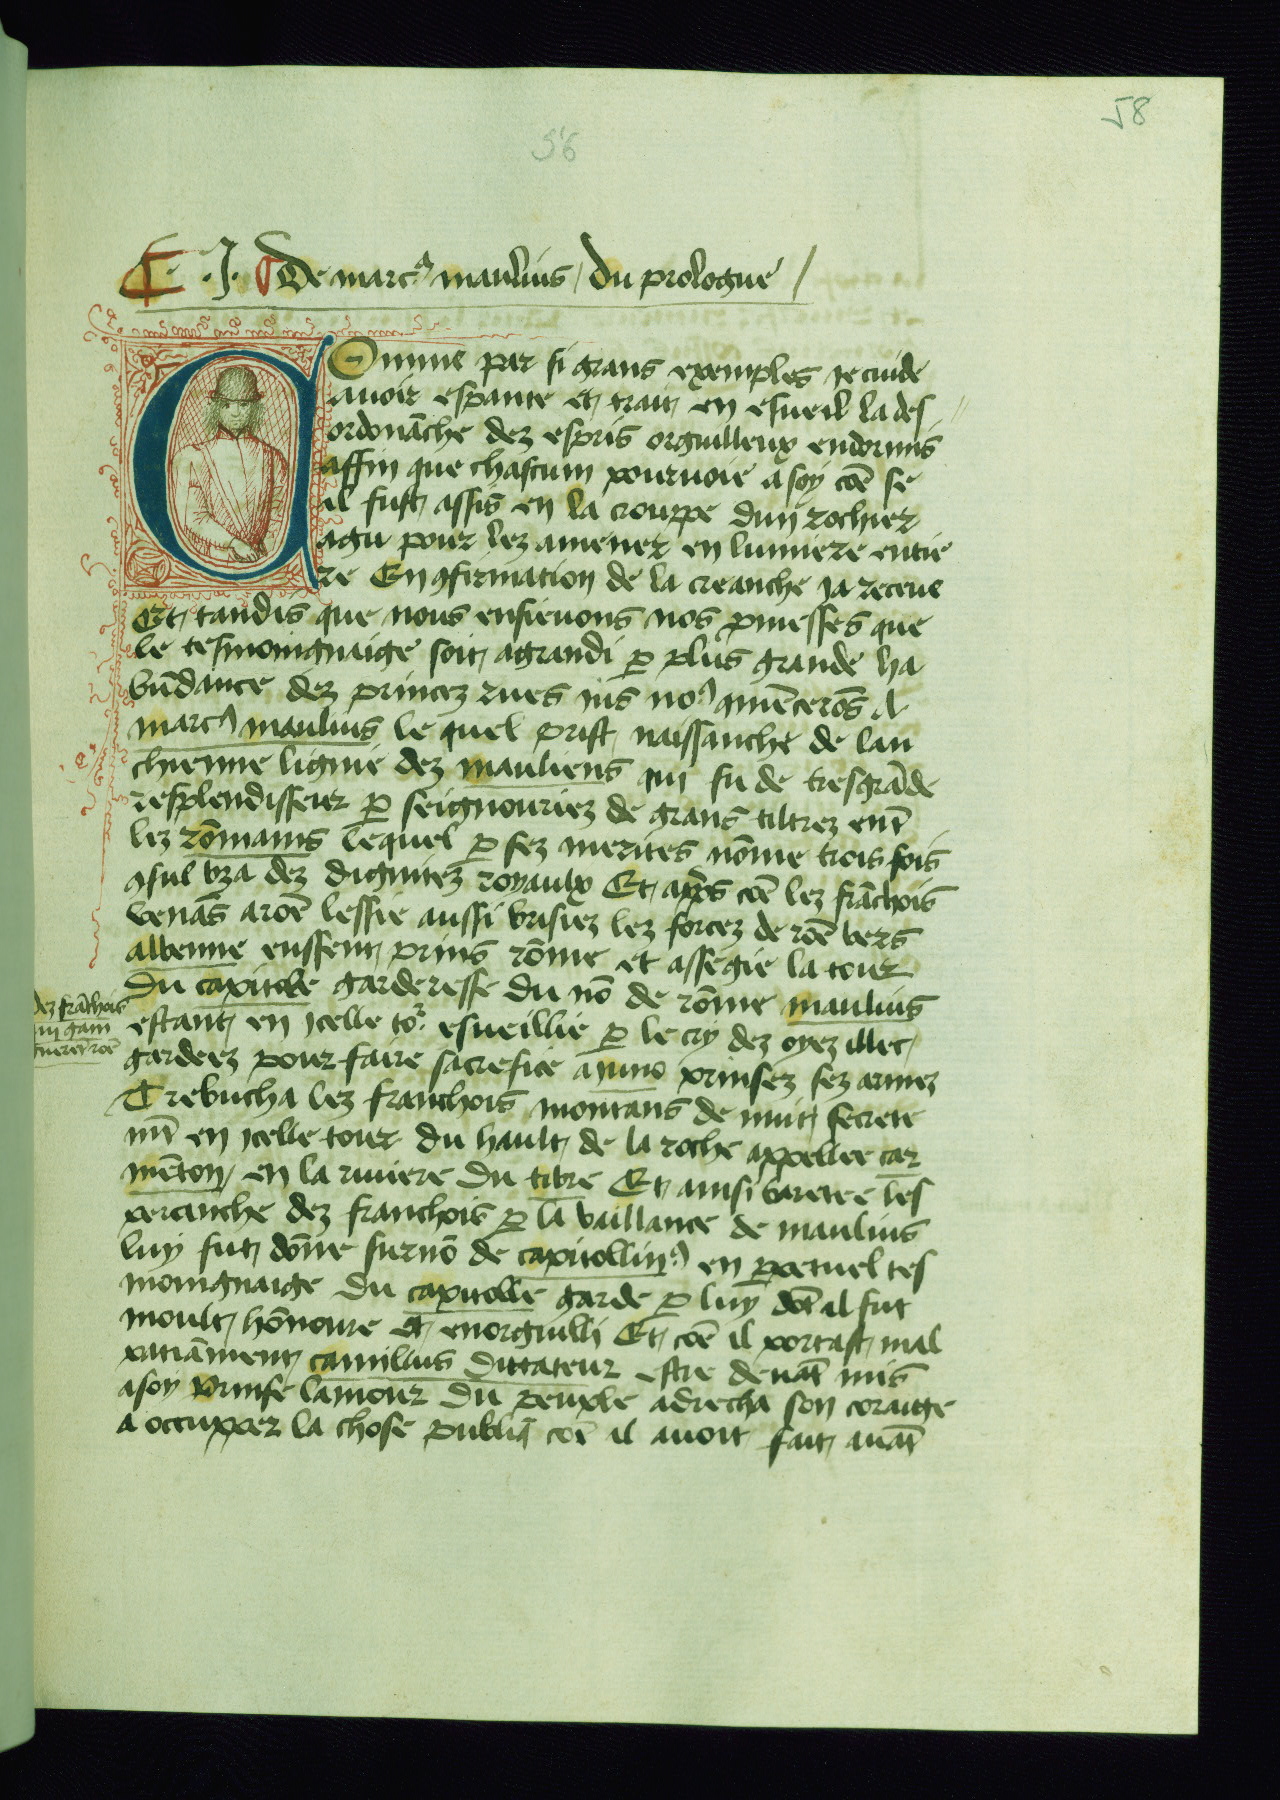 58
56
.I. De marcꝰ manlius / du prologue /
COmme par si grans exemples ie cuide
auoir espante et trait en esueil la des
ordonāche dez espris orguilleux endormis
affin que chascum pouruoie a soy cōe se
il fust assis en la crouppe dun rochier
agu pour lez amener en lumiere entie
re En ꝯfirmation de la creanche ia receue
Et tandis que nous ensieuons nos ꝓmesses que
le tesmoingnaige soit agrandi ꝑ plus grande ha
būdance dez princez rues ius noꝰ ꝯmēcerōs A
marcꝰ manlius le quel prist naissanche de lan
chienne lignie dez manliens qui fu de tresgrāde
resplendisseur ꝑ seignouriez de grans tiltrez entͬ
lez rōmains lequel ꝑ sez merites nōme trois fois
ꝯsul vza dez dignitez royaulx Et apꝭs cōe lez frāchois
venās a rōe lessie aussi brisiez lez forcez de rōe vers
albenne eussent prins rōme et assegie la tour
du capitole garderesse du nō de rōme manlius
estant en icelle toꝰ. esueillie ꝑ le cry dez oyez illec
gardeez pour faire sacrefice a juno prinsez sez armez
Trebucha lez franchois montans de nuit secrete
mͭ en icelle tour du hault de la roche appellee car
mēton / en la riuiere du tibre Et ainsi caretee les
peranche dez franchois ꝑ la vaillance de manlius
luy fut dōne surnō de capitollinꝰ en ꝑpetuel tes
moingnaige du capitolle garde ꝑ luy dōt il fut
moult hōnoure et enorguilli Et cōe il portast mal
patiāment camillus dittateur estre deuāt mis
a soy Prinse lamour du peuple adrecha son coraige
a occupper la chose publiq̄ cōe il auoit fait auāt
dez frāchois